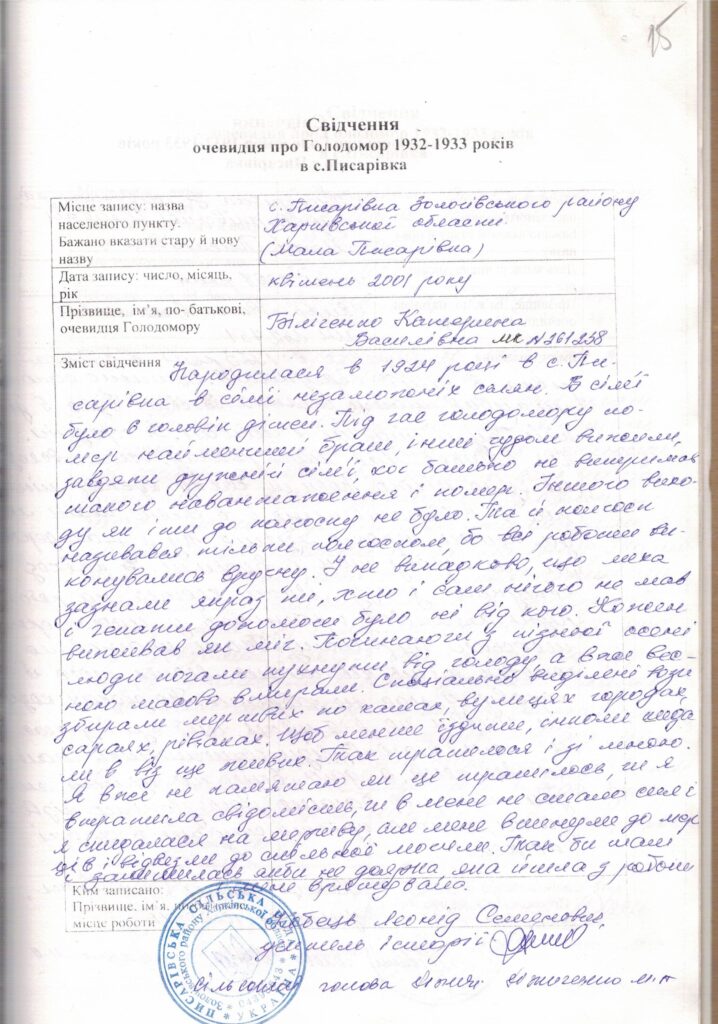 15
Свідчення
очевидця про Голодомор 1932-1933 років
в с.Писарівка
Місце запису: назва
населеного пункту.
Бажано вказати стару й нову
назву
с. Писарівка Золочівського району
Харківської області
(Мала Писарівка)
Дата запису: число, місяць,
рік
квітень 2001 року
Прізвище, ім’я, по- батькові,
очевидця Голодомору
Катерина
Василівна МК №261238
Зміст свідчення
Народилася в 1924 році в с. Пи-
сарівка в сімї незаможніх селян. В сімї
було 8 чоловік дітей. Під час голодомору по-
мер найменший брат, інші чудом вижили,
завдяки дружній сімї, хоч батько не витримав
такого навантаження і помер. Іншого вихо-
ду як іти до колгоспу не було. Та й колгосп
називався тільки колгоспом, бо всі роботи ви-
конувались вручну. І не випадково, що лиха
зазнали якраз ми, хто і сам нічого не мав
і чекати допомоги було ні від кого. Кожен
виживав як міг. Починаючи з пізньої осені
люди почали пухнути від голоду, а вже вес-
ною масово вмирали. Спеціально виділені вози
збирали мертвих по хатах, вулицях городах,
сараях, рівчаках. Щоб менше їздити, інколи кида
ли в віз ще живих. Так трапилося і зі мною.
Я вже не памятаю як це трапилось, чи я
втратила свідомість, чи в мене не стало сил і
я скидалася на мертву, але мене вкинули до мер
ців і відвезли до спільної могили. Так би там
і залишилась якби не доярка, яка йшла з роботи
мене врятувала.
Ким записано:
Прізвище, ім’я,
місце роботи
Леонід Семенович,
учитель історії
Сільський голова
ПИСАРІВСЬКА СІЛЬСЬКА РАДА
УКРАЇНА